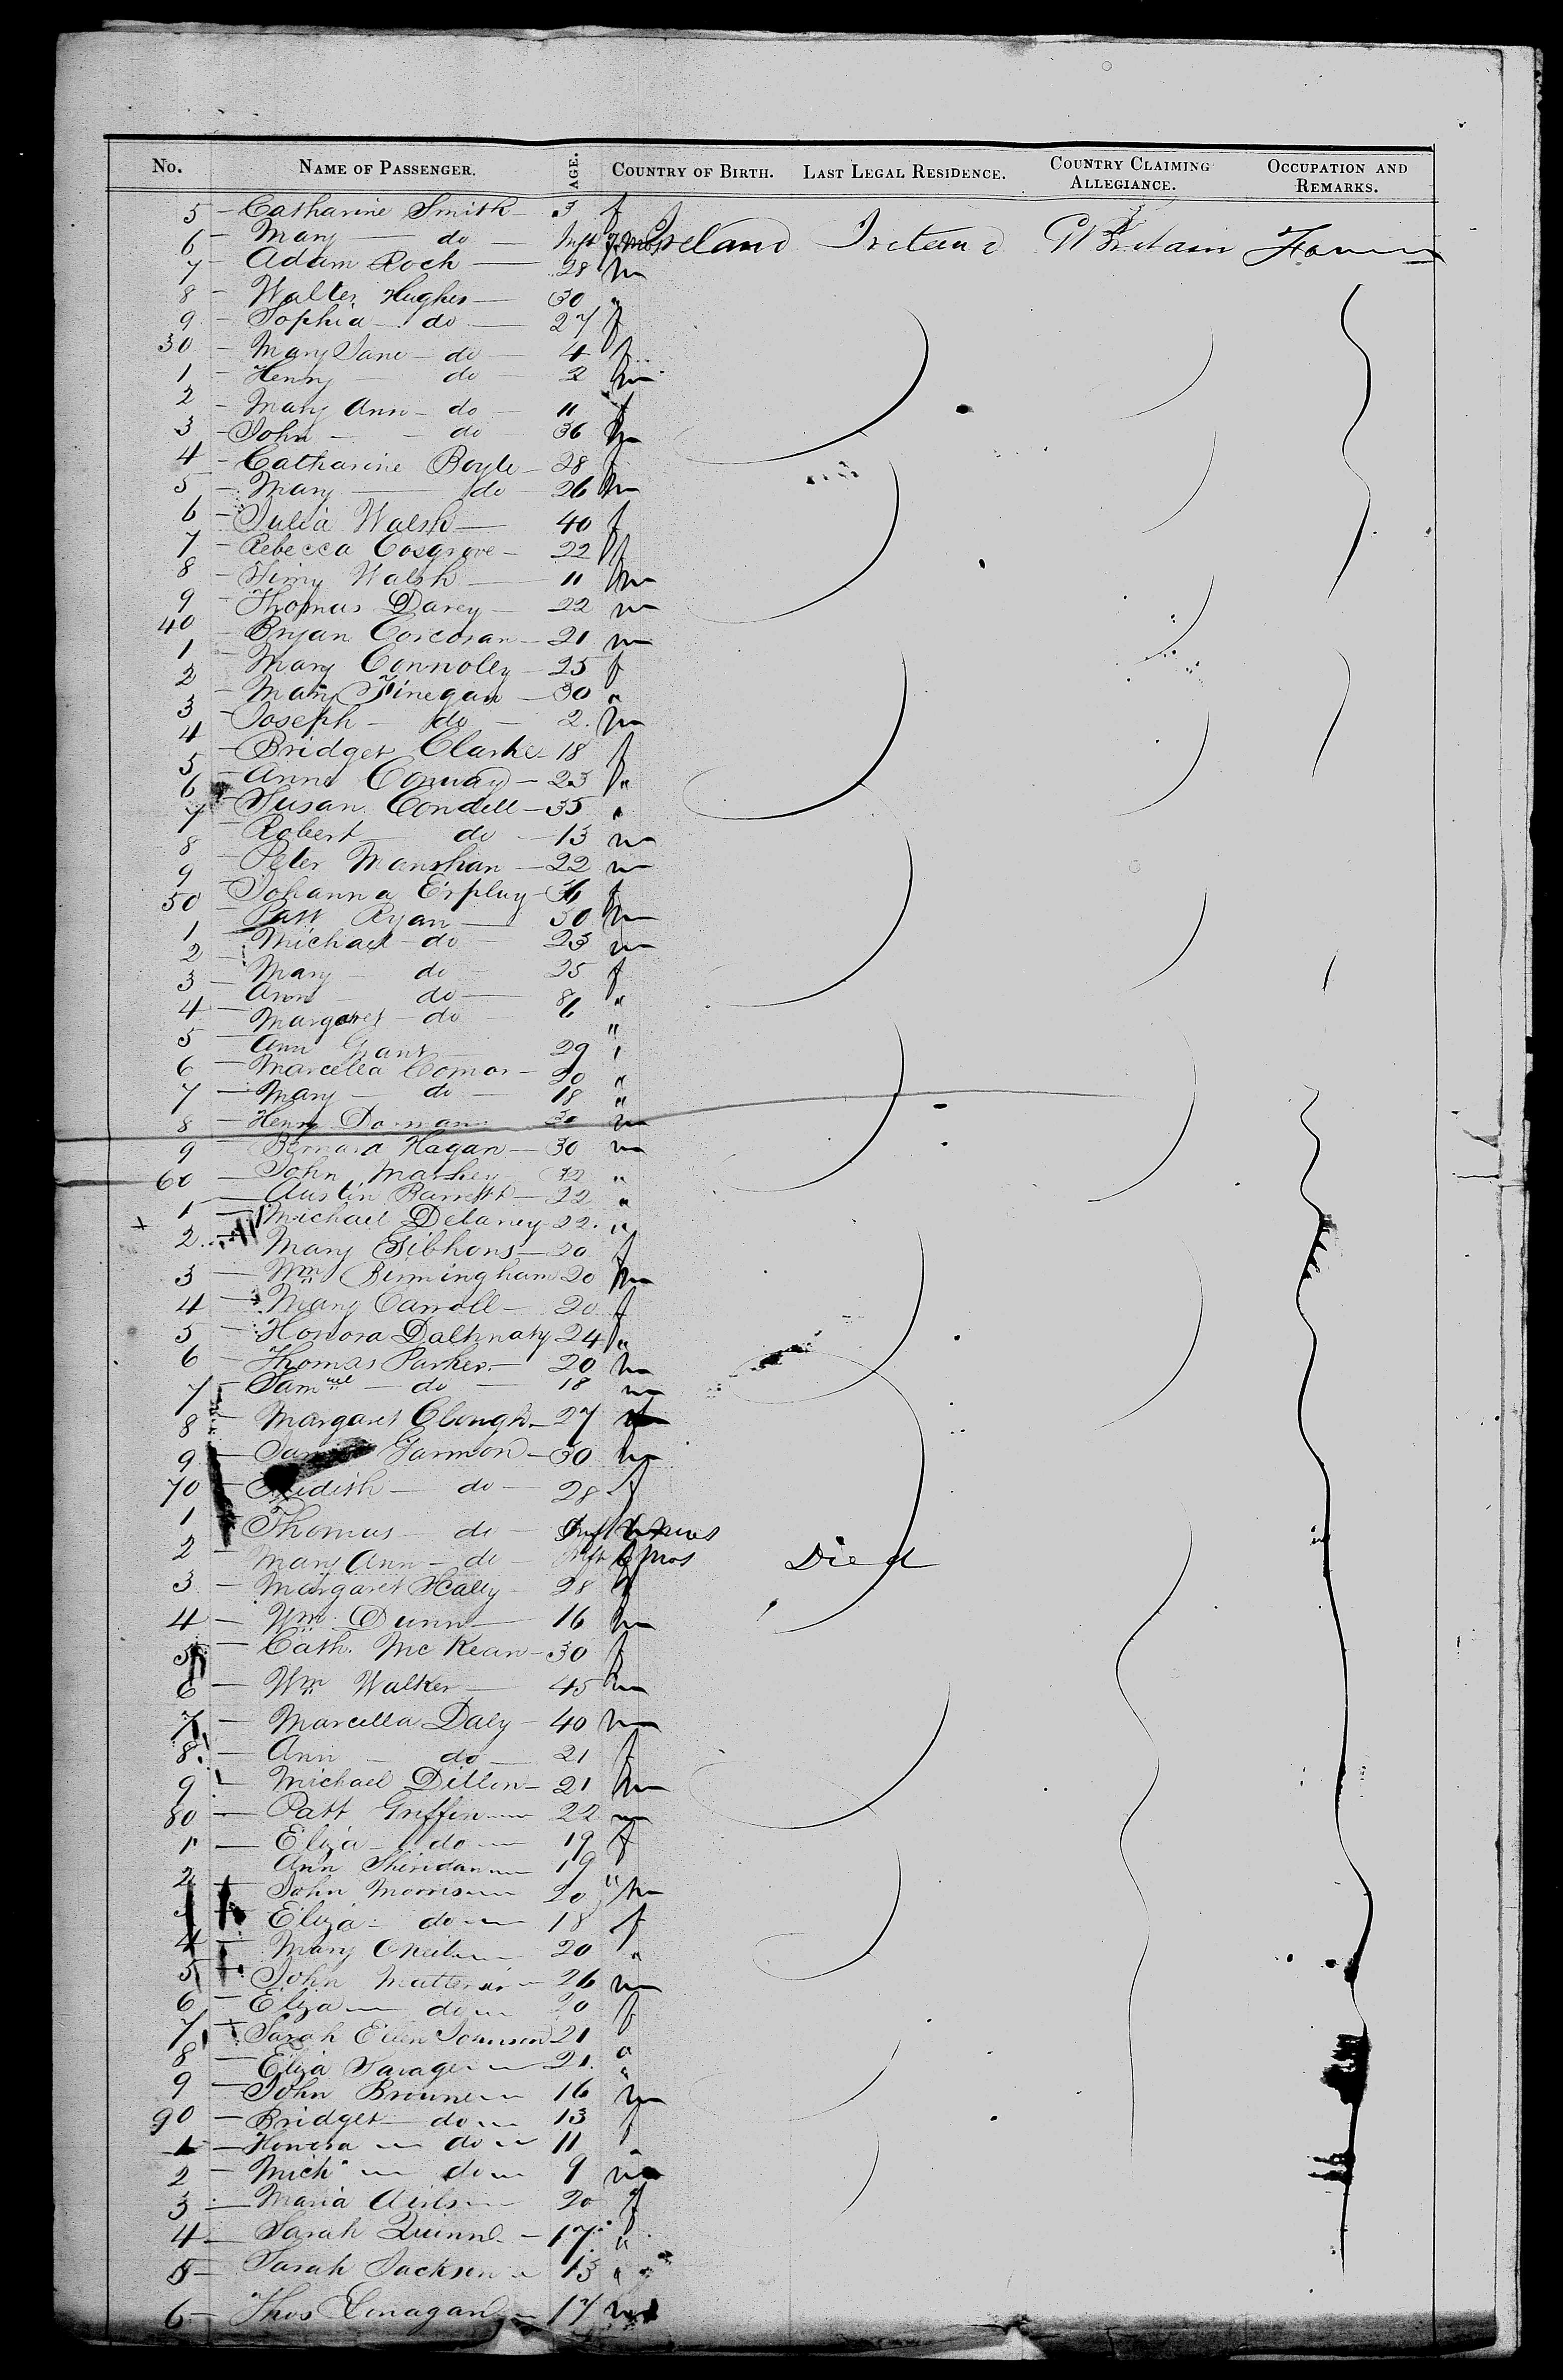 No. NAME OF PASSENGER. AGE. COUNTRY OF BIRTH. LAST LEGAL RESIDENCE. COUNTRY CLAIMING ALLEGIANCE. OCCUPATION AND REMARKS.
5 - Catharine Smith - 3 f
6 - Mary - do - Inft Ireland Ireland Gt Britain
7 - Adam Roch - 28 m
8 - Walter Hughes - 30 "
9 - Sophia - do - 27 f
30 - Mary Jane - do - 4 f
1 - Henry - do - 2 m
2 - Mary Ann - do - 11 f
3 - John - do 36 m
4 - Catharine Boyle - 28 f
5 - Mary - do - 26 m
6 - Julia Walsh - 40 f
7 - Rebecca Cosgrove - 22 f
8 - Walsh - 11 m
9 - Thomas Darcy - 22 m
40 - Bryan Corcoran - 21 m
1 - Mary Connoley - 25 f
2 - Mary Finegan - 30 "
3 - Joseph - do - 2 m
4 - Bridget Clarke - 18 f
5 - Anne Conway - 23 "
6 - Susan Condell - 35 "
7 - Robert - do - 13 m
8 - Peter - 22 m
9 - Johanna f
50 - Patt Ryan - 30 m
1 - Michael - do - 23 m
2 - Mary - do - 25 f
3 - Ann - do - 8 "
4 - Margaret - do - 6 "
5 - Ann Grant - 29 "
6 - Marcella - 20 "
7 - Mary - do - 18 "
8 - Henry 30 m
9 - Bernard Hagan - 30 m
60 - John "
- Austin Barrett - 22 "
1 - Michael Delaney 22 "
2 - Mary Gibbons - 20 f
3 - Wm Birmingham 20 m
4 - Mary Carroll - 20 f
5 - Honora 24 "
6 - Thomas Parker - 20 m
7 - Samuel - do - 18 m
8 - Margaret Clough - 27
9 - 30 m
70 - Judith - do - 28 f
1 - Thomas - do - Inft mos
2 - Mary Ann - do - Inft 6 mos Died
3 - Margaret 28 f
4 - Wm Dunn - 16 m
5 - Cath. McKean - 30 f
6 - Wm Walker - 45 m
7 - Marcella Daly - 40 m
8 - Ann - do - 21 f
9 - Michael Dillon - 21 m
80 - Patt Griffin 22 m
1 - Eliza - do 19 f
2 Ann Sheridan 19 "
John Morris 20 m
Eliza - do 18 f
4 - Mary Oneil 20 "
5 John 26 m
6 - Eliza do 20 f
7 - Sarah Ellen Johnson 21 "
8 - Eliza Savage 21 "
9 - John Browne 16 m
90 - Bridget - do 13 f
1 - Honora do 11 "
2 - Mich do 9 m
3 - Maria 20 f
4 - Sarah Quinn - 17 "
5 - Sarah Jackson 13 "
6 - Thos 17 m